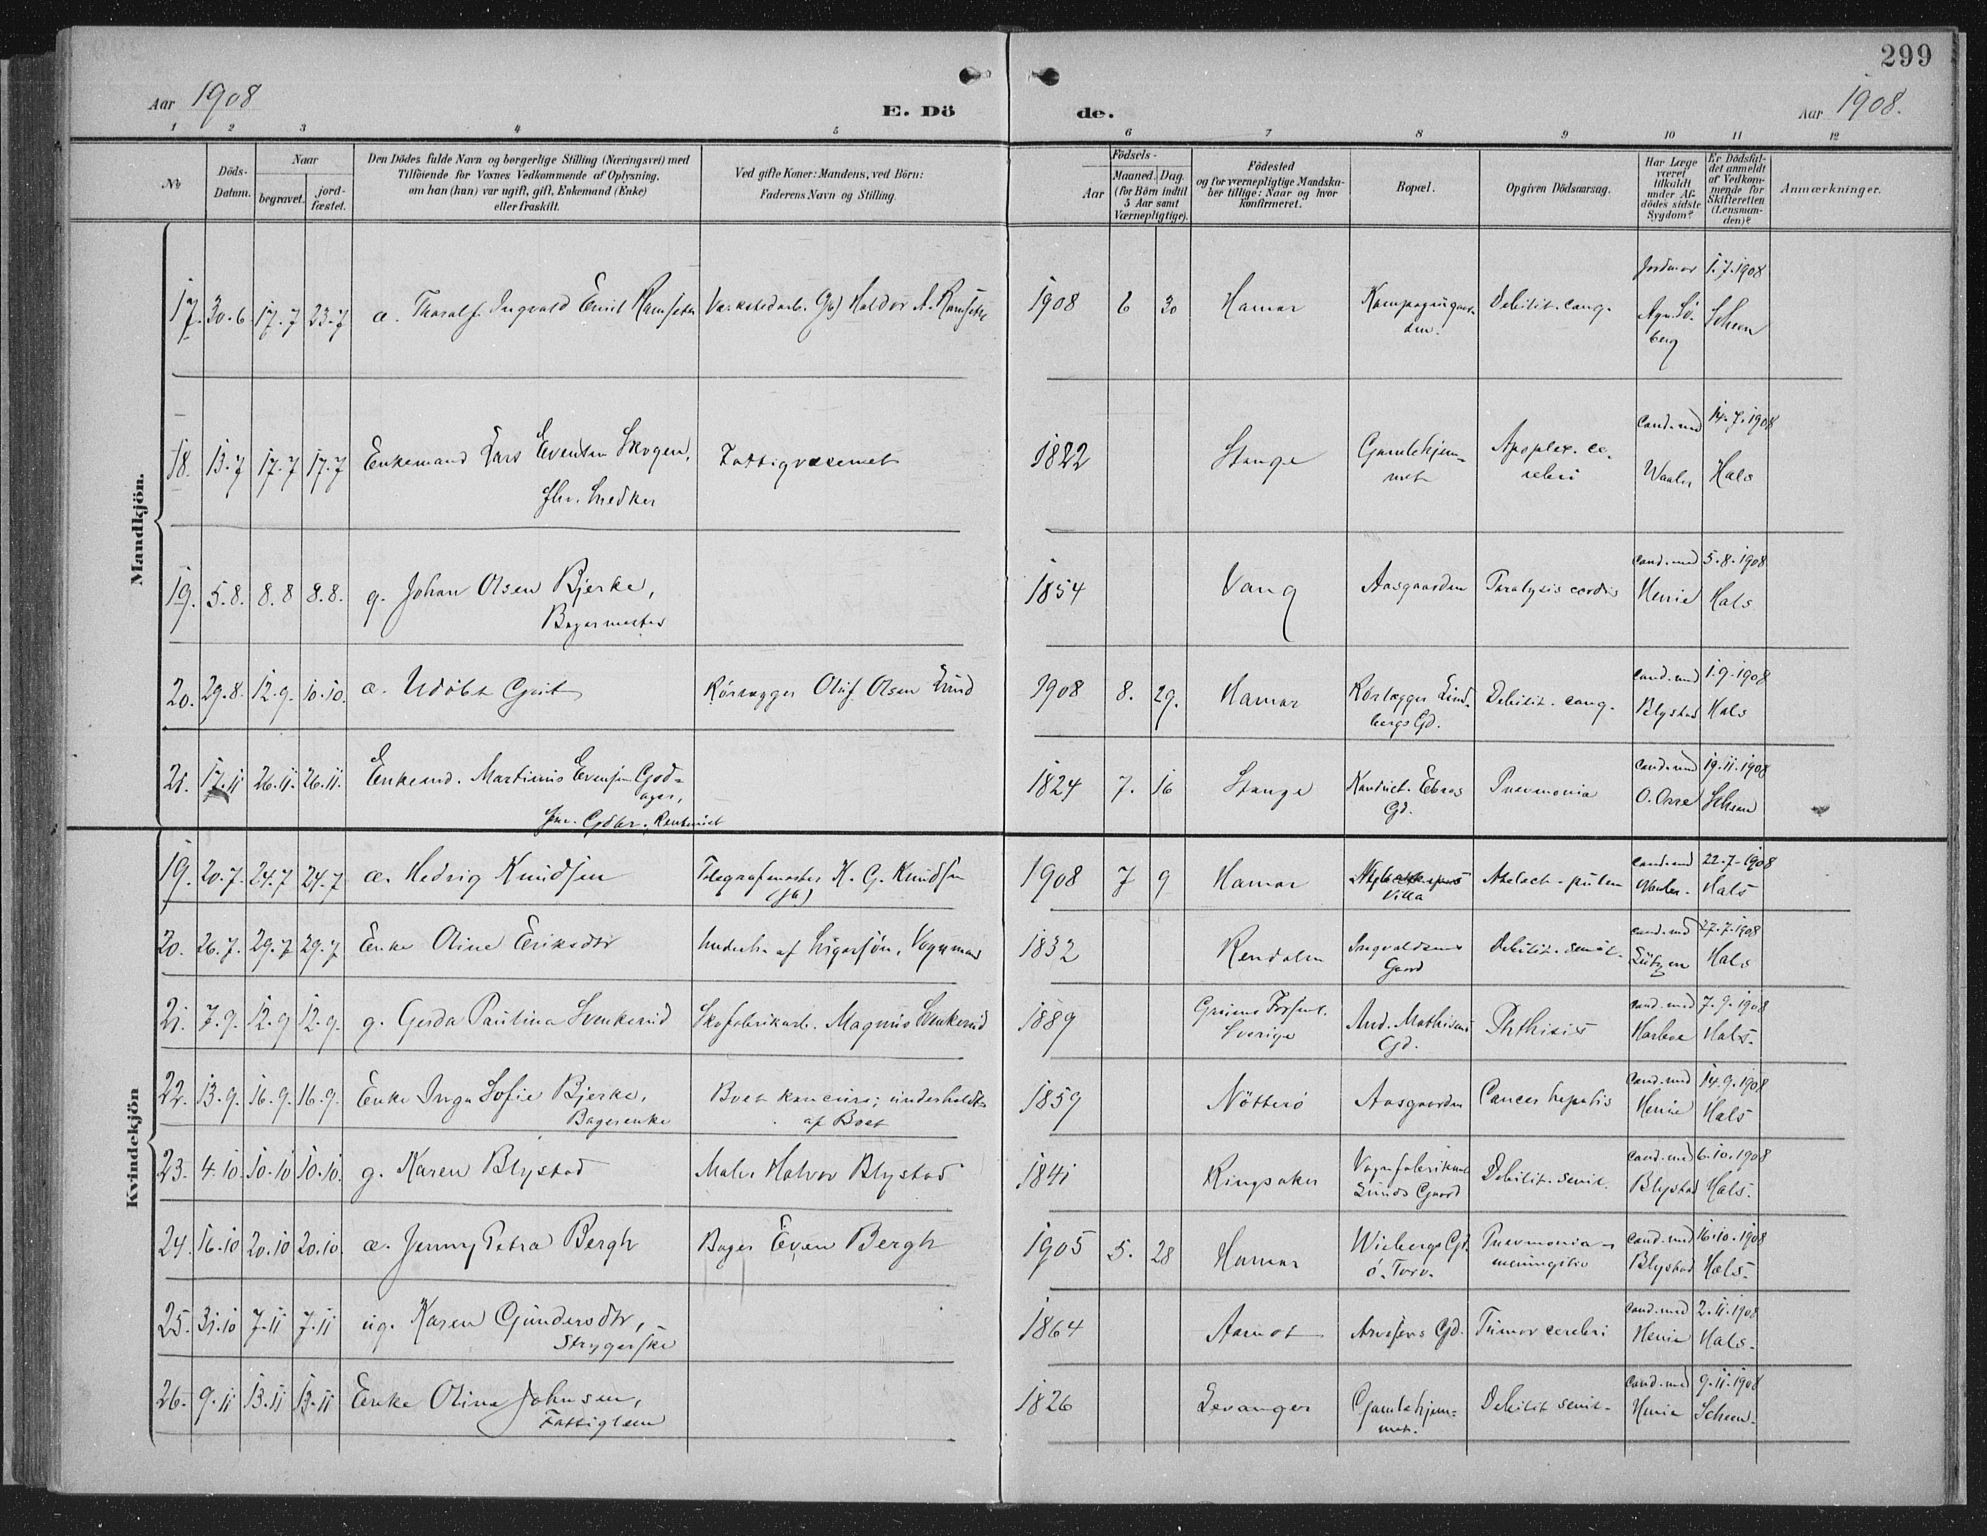 299
Aar 1908
E. Dö
de.
Aar 1908.
1 2 3 4 5 6 7 8 9 10 11 12
No
Döds-Datum.
Naar
begravet.
jord-fæstet.
Den Dödes fulde Navn og borgerlige Stilling (Næringsvei) med
Tilföiende for Voxnes Vedkommende af Oplysning,
om han (hun) var ugift, gift, Enkemand (Enke)
eller fraskilt.
Ved gifte Koner: Mandens, ved Börn:
Faderens Navn og Stilling.
Födsels-
Aar
Maaned. Dag.
(for Börn indtil
5 Aar samt
Værnepligtige).
Födested
og for værnepligtige Mandska-
ber tillige: Naar og hvor
konfirmeret.
Bopæl.
Opgiven Dödsaarsag.
Har Læge
været
tilkaldt
under Af-
dödes sidste
Sygdom?
Er Dödsfal-
det anmeldt
af Vedkom-
mende for
Skifteretten
(Lensman-
den)?
Anmærkninger.
Mandkjön.
17. 30.6 17.7 23.7 æ. Thoralf Ingvald Emil Ramseth Værkstedarb. (Jb) Haldor A. Ramseth 1908 6 30 Hamar Debilit. cong. Jordmor 1.7.1908
Scheen
18. 13.7 17.7 17.7 Enkemand Lars Evensen Skogen,
fhv. Snedker
Fattigvæsenet 1822 Stange Gamlehjem-
met
Apoplex. ce-
rebri
cand. med
Waaler
14.7.1908
Hals
19. 5.8. 8.8 8.8. g. Johan Olsen Bjerke,
Bagermester
1854 Vang Aasgaarden Paralysis cordis cand. med
Henie
5.8.1908
Hals
20. 29.8. 12.9. 10.10. æ. Udöbt Gut Rörlægger Oluf Olsen Lund 1908 8. 29. Hamar Rörlægger Lind-
bergs Gd.
Debilit. cong. cand. med
Blystad
1.9.1908
Hals
21. 17.11 26.11. 26.11. Enkemd. Martinus Evensen God-
ager,
fhv. Gdbr., Rentenist
1824 7. 16 Stange Gd. Pneumonia cand. med 19.11.1908
Scheen
Kvindekjön
19. 20.7. 24.7 24.7 æ. Hedvig Knudsen Telegrafmester K. G. Knudsen
(Jb)
1908 7 9 Hamar Villa Atelect. pulm cand. med
Waaler.
22.7.1908
Hals
20. 26.7. 29.7 29.7 Enke Oline Eriksdtr Underh. af Svigersön, Vognmand 1832 Rendalen Ingvaldsens
Gaard
Debilit. senil. cand. med
Lützen
27.7.1908
Hals
21. 7.9. 12.9 12.9. g. Gerda Paulina Svenkerud Skofabrikarb. Magnus Svenkerud 1889 Sverige And. Mathisens
Gd.
Phthisis cand. med
Harboe
7.9.1908
Hals.
22. 13.9. 16.9. 16.9. Enke Inga Sofie Bjerke,
Bagerenke
Boet konkurs; underholdt
af Boet
1859 Nötterö Aasgaarden Cancer hepatis cand. med
Henie
14.9.1908
Hals
23. 4.10. 10.10 10.10. g. Karen Blystad Maler Halvor Blystad 1841 Ringsaker Vognfabrikant
Lunds Gaard
Debilit. senil. cand. med
Blystad
6.10.1908
Hals.
24. 16.10 20.10 20.10. æ. Jenny Petra Bergh Bager Even Bergh 1905 5. 28 Hamar Wiebergs Gd.
ö. Torv.
Pneumonia -
meningitis
cand. med
Blystad
16.10.1908
Hals.
25. 31.10 7.11 7.11 ug. Karen Gundersdtr,
Strygerske
1864 Aamot Arnesens Gd. Tumor cerebri cand. med
Henie
2.11.1908
Hals.
26. 9.11 13.11 13.11 Enke Oline Johnsen,
Fattiglem
1826 Levanger Gamlehjem-
met.
Debilit senil. cand. med
Henie
9.11.1908
Scheen.